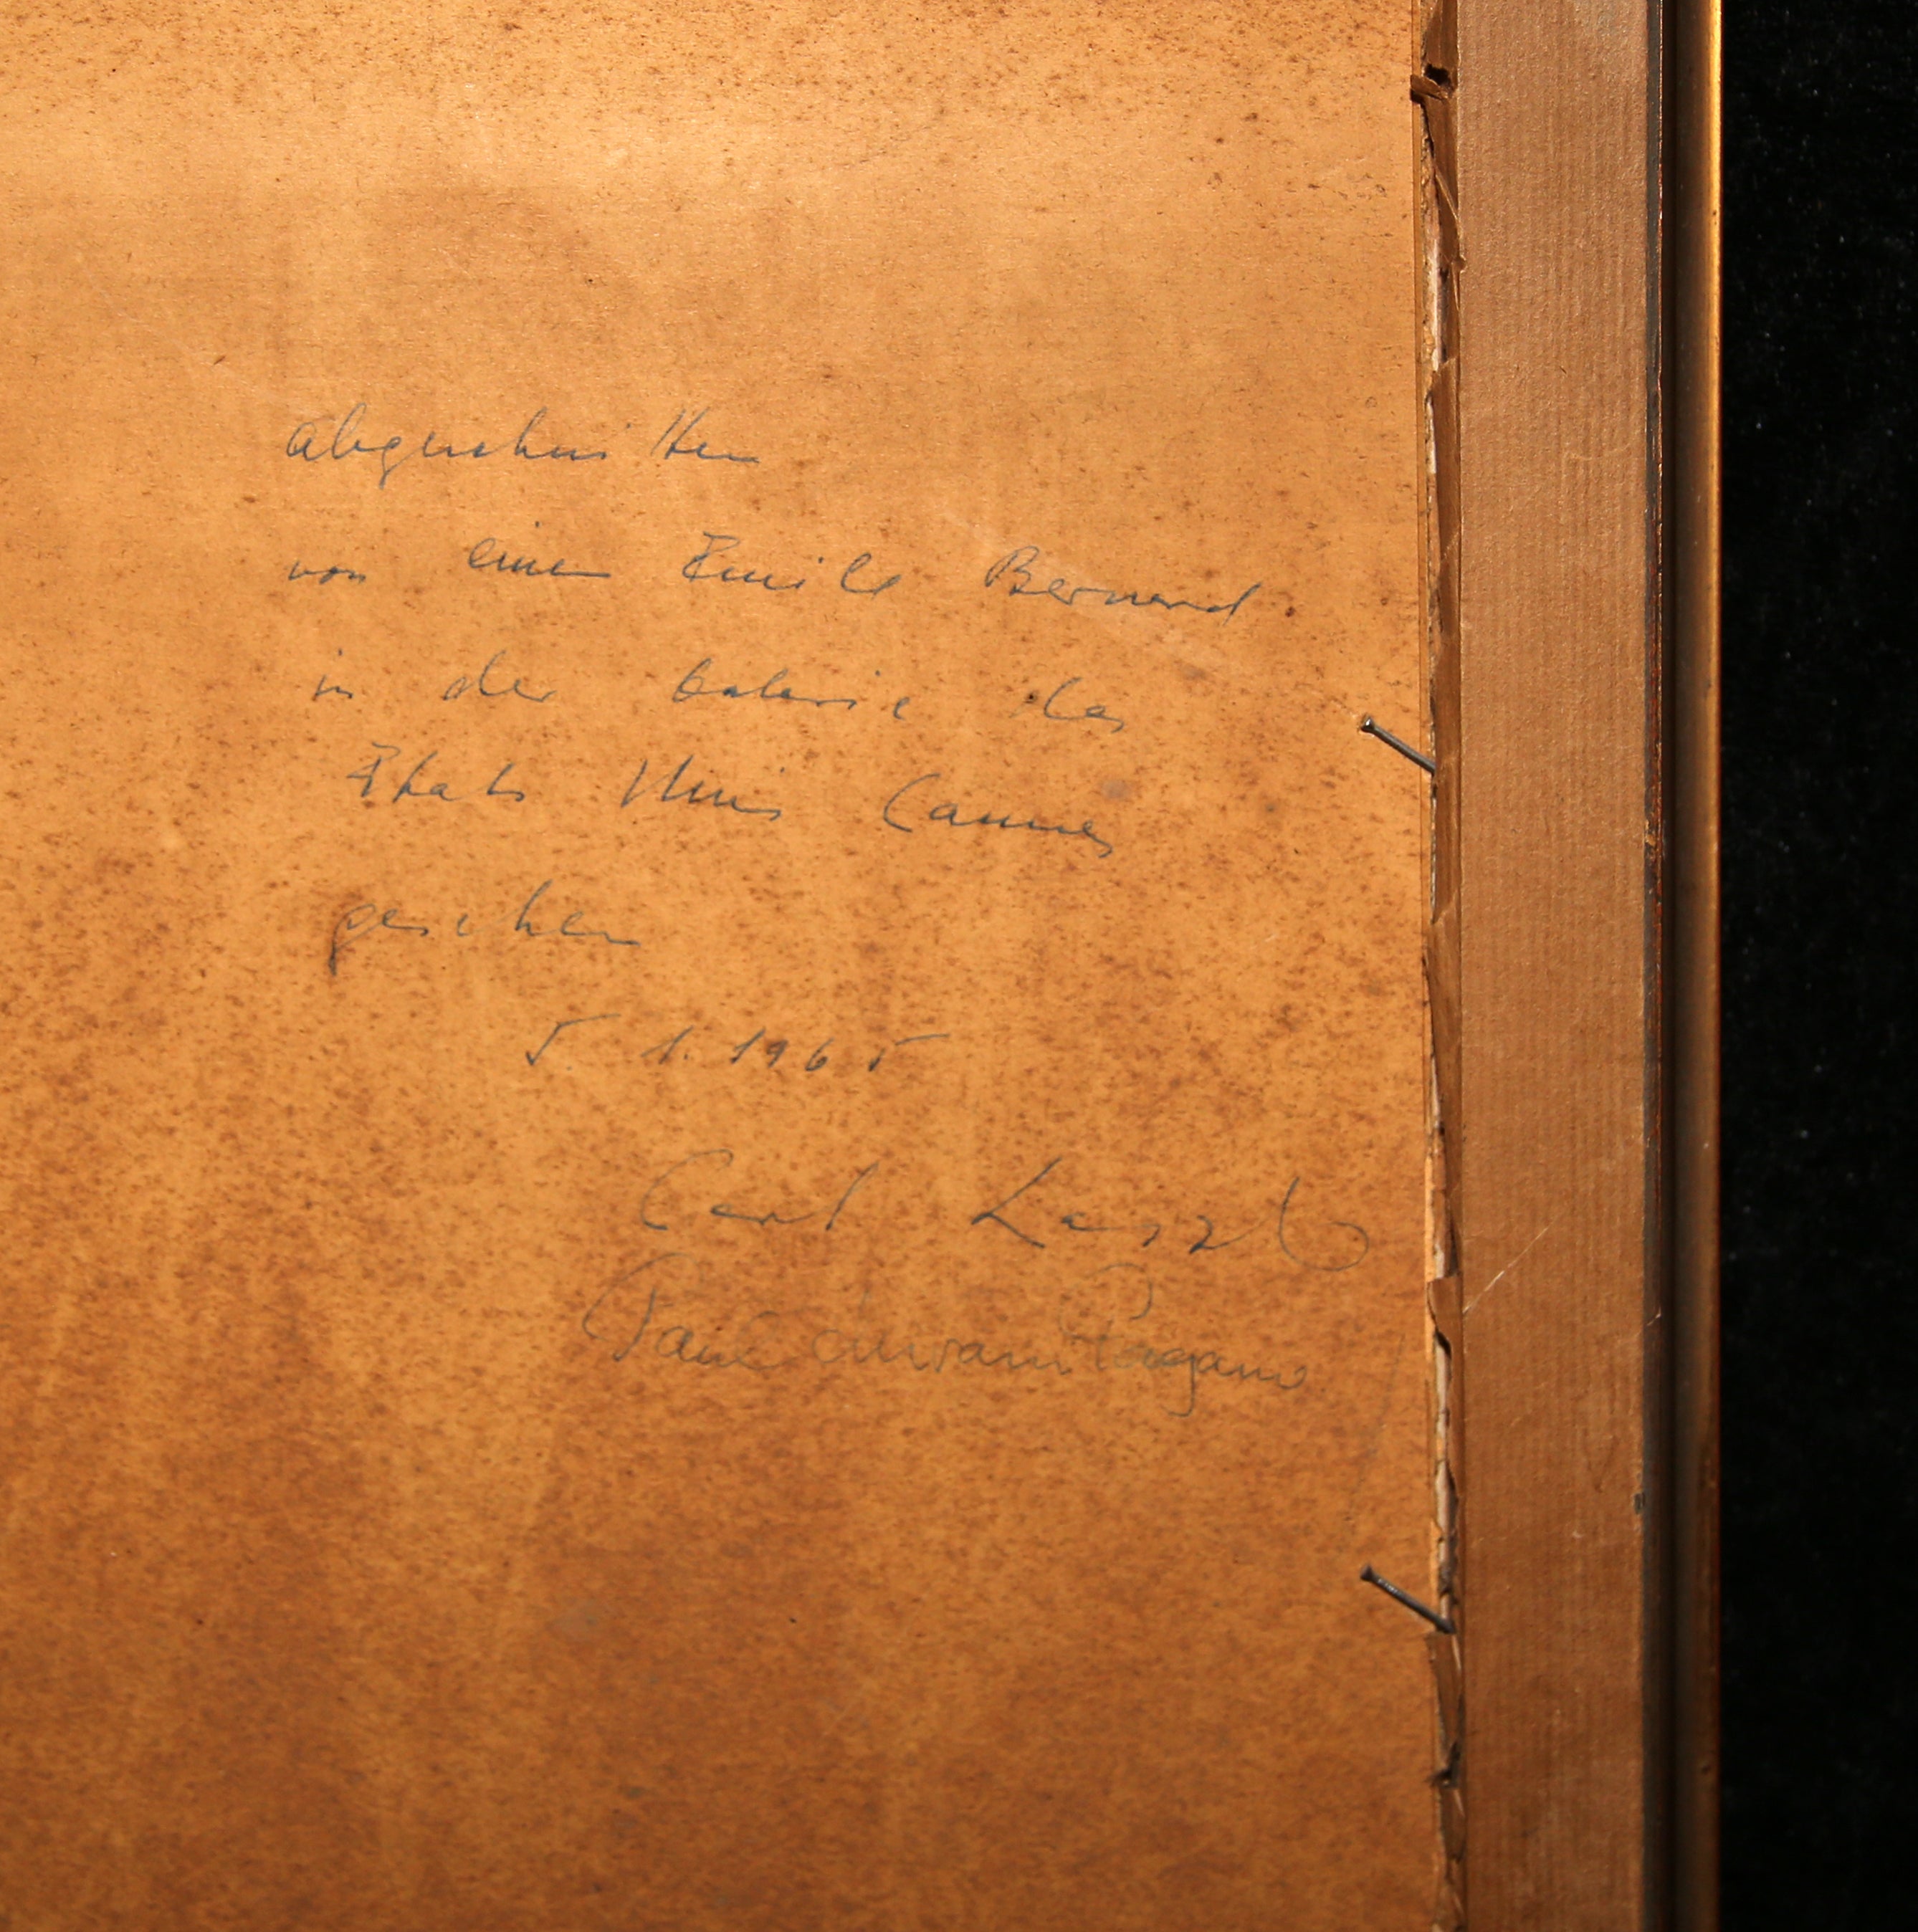 abgeschnitten
von einem Emile Bernard
in der Galerie des
Etats Unis Cannes
gesehen
5. 1. 1965
Carl Laszlo
Pagano